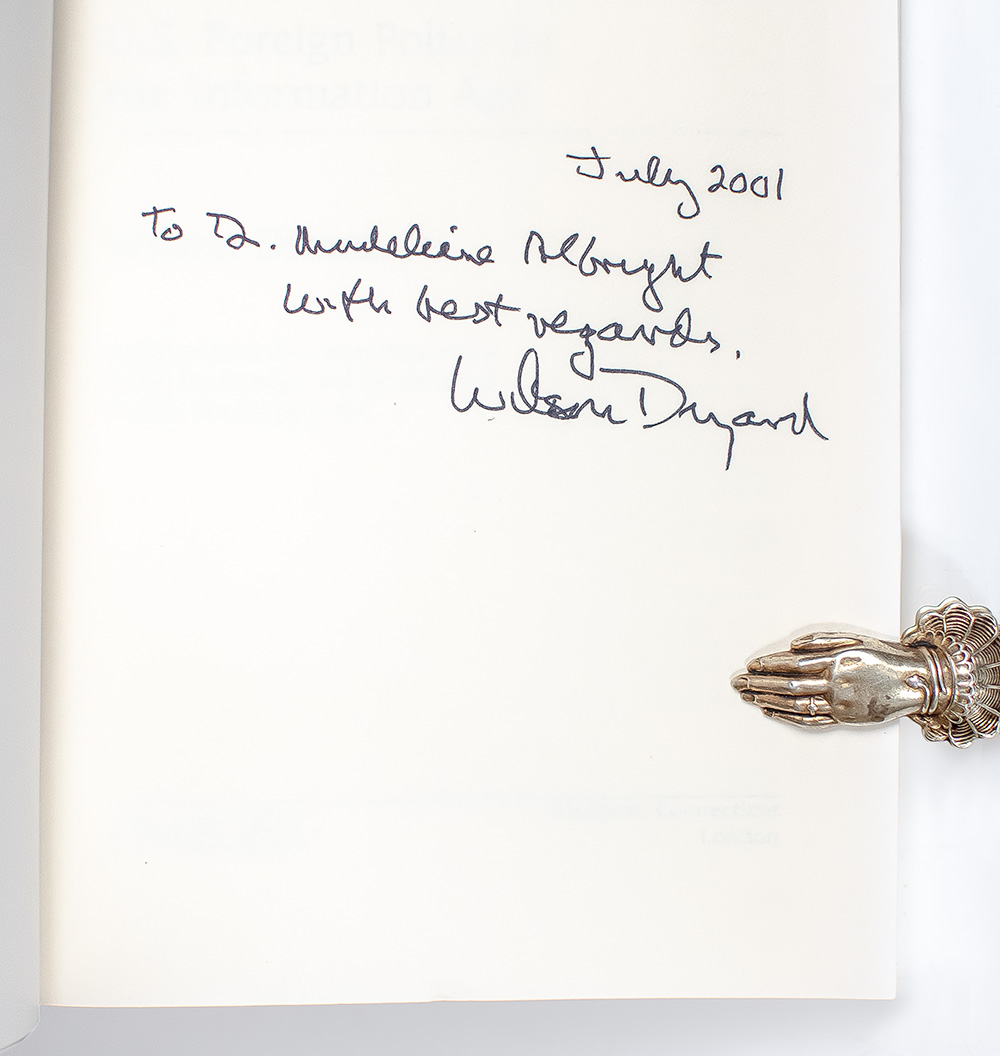 U.S. Foreign Policy in
the Information Age
July 2001
To Dr. Madeleine Albright
with best regards.
Wilson Dizard
Connecticut
London